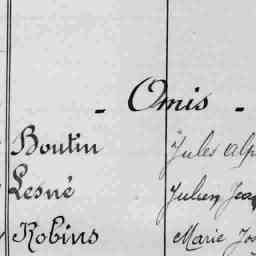 - Omis -
Boutin Jules Alp
Lesné Julien Jea
Robins Marie Jos